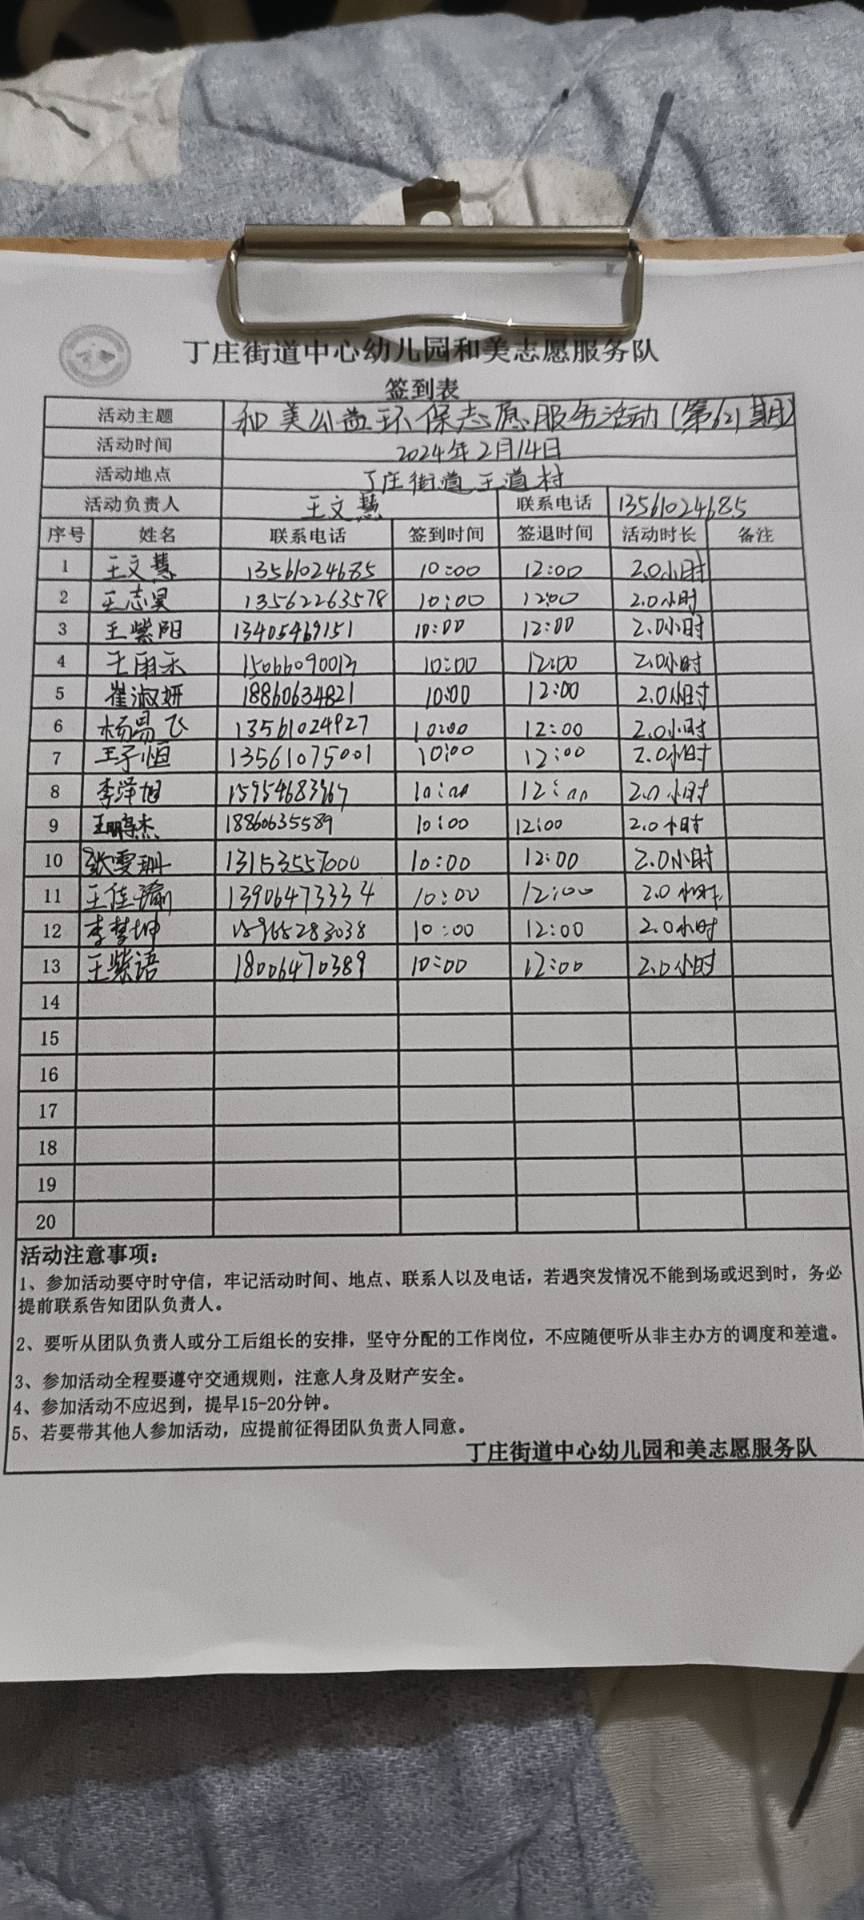 丁庄街道中心幼儿园和美志愿服务队
签到表
活动主题 和美公益环保志愿服务活动(第621期)
活动时间 2024年2月14日
活动地点 丁庄街道王道村
活动负责人 王文慧 联系电话 13561024685
序号 姓名 联系电话 签到时间 签退时间 活动时长 备注
1 王文慧 13561024685 10:00 12:00 2.0小时
2 王志昊 13562263578 10:00 12:00 2.0小时
3 王紫阳 13405469151 10:00 12:00 2.0小时
4 王雨禾 10:00 12:00 2.0小时
5 崔淑妍 18860634821 10:00 12:00 2.0小时
6 杨易飞 13561024927 10:00 12:00 2.0小时
7 王子恒 13561075001 10:00 12:00 2.0小时
8 李泽旭 15954683967 10:00 12:00 2.0小时
9 王鹏杰 18860635589 10:00 12:00 2.0小时
10 张雯珊 13153557000 10:00 12:00 2.0小时
11 王佳瑜 13906473334 10:00 12:00 2.0小时
12 李梦坤 15965283038 10:00 12:00 2.0小时
13 王紫语 18006470389 10:00 12:00 2.0小时
14
15
16
17
18
19
20
活动注意事项:
1、参加活动要守时守信，牢记活动时间、地点、联系人以及电话，若遇突发情况不能到场或迟到时，务必
提前联系告知团队负责人。
2、要听从团队负责人或分工后组长的安排，坚守分配的工作岗位，不应随便听从非主办方的调度和差遣。
3、参加活动全程要遵守交通规则，注意人身及财产安全。
4、参加活动不应迟到，提早15-20分钟。
5、若要带其他人参加活动，应提前征得团队负责人同意。
丁庄街道中心幼儿园和美志愿服务队